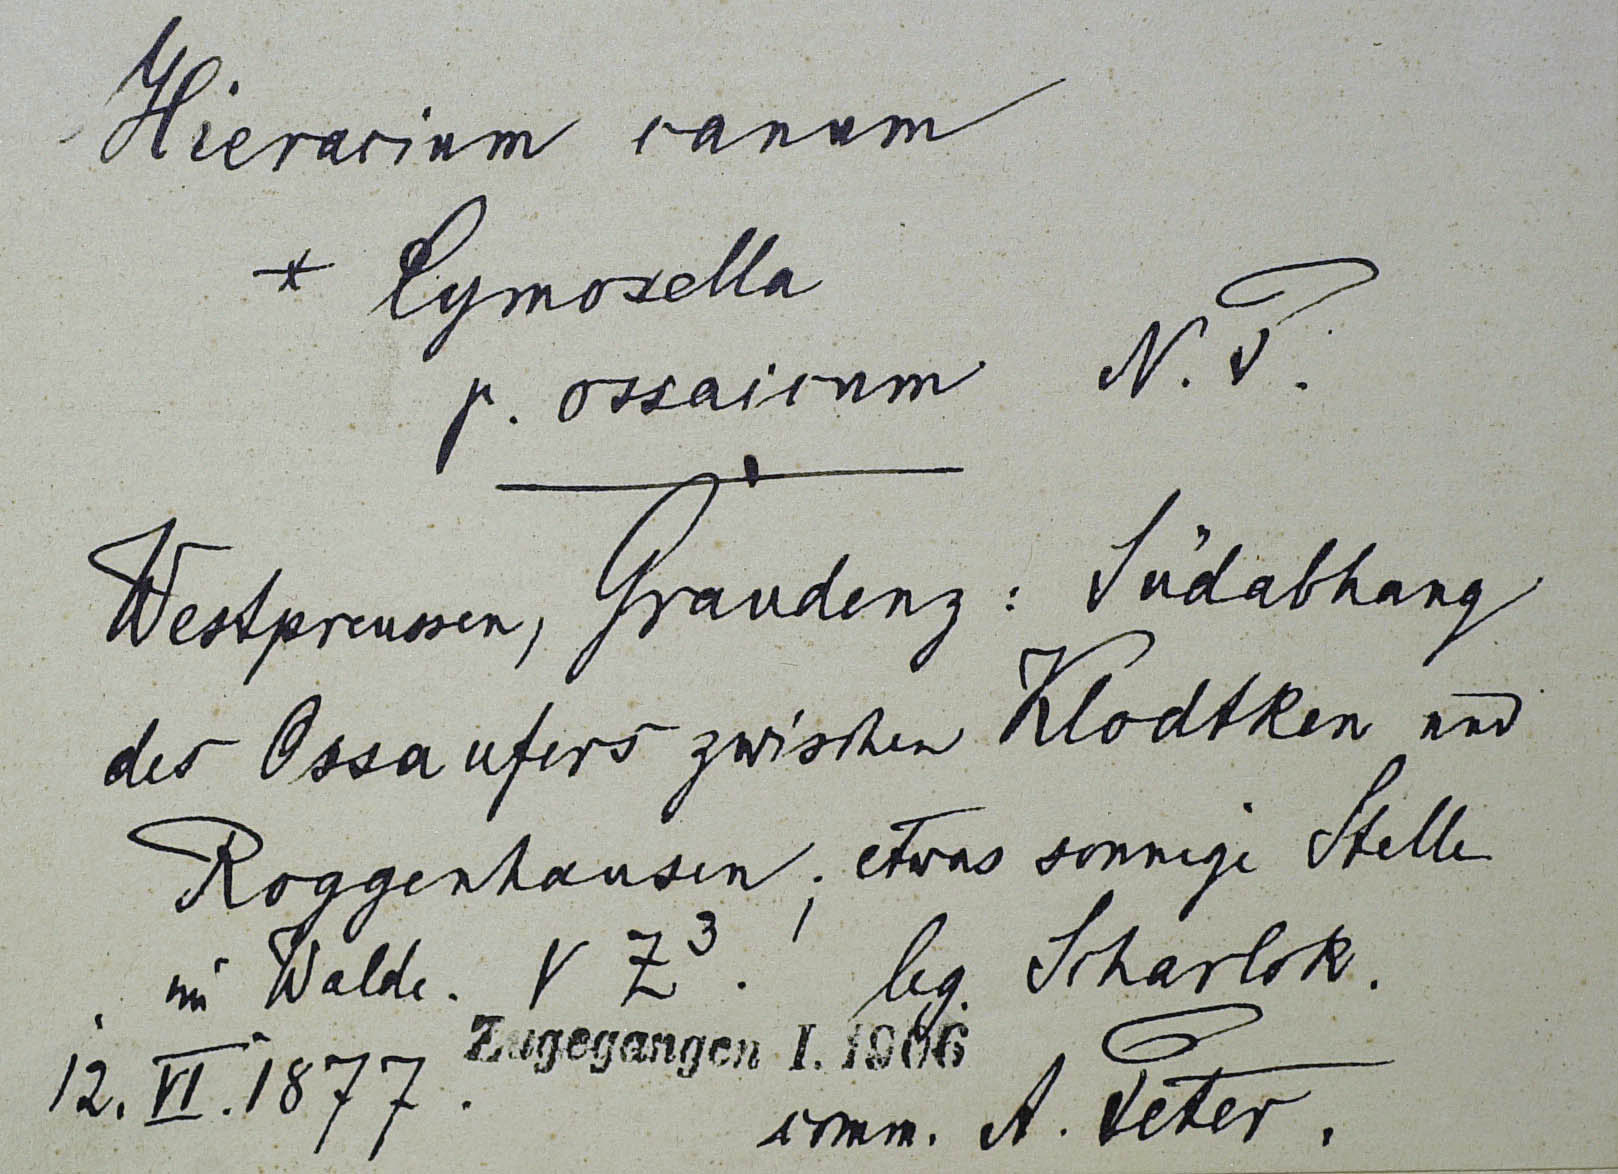 Hieracium canum
* Cymosella
p. ossaicum N. P.
Westpreussen, Graudenz: Südabhang
des Ossaufers zwischen Klodtken und
Roggenhausen; etwas sonnige Stelle
im Walde. V Z³. leg. Scharlok.
Zugegangen I. 1906
12. VI. 1877.
comm. A. Peter.